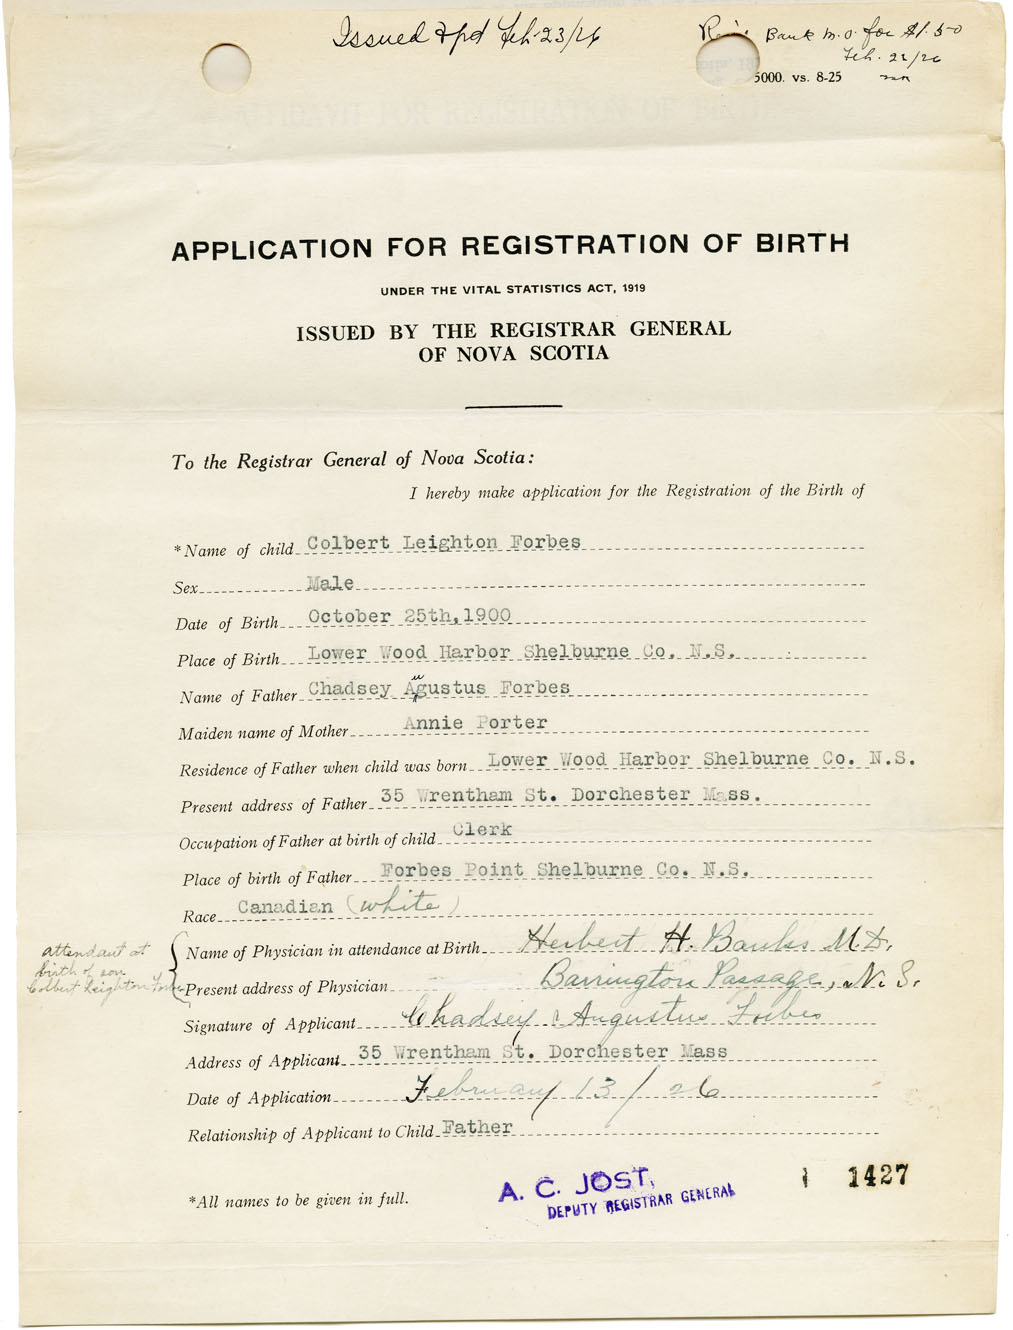 Issued & pd Feb. 23/26
Bank m.o. for $1.50
Feb. 22/26
5000. vs. 8-25
APPLICATION FOR REGISTRATION OF BIRTH
UNDER THE VITAL STATISTICS ACT, 1919
ISSUED BY THE REGISTRAR GENERAL
OF NOVA SCOTIA
To the Registrar General of Nova Scotia:
I hereby make application for the Registration of the Birth of
*Name of child Colbert Leighton Forbes
Sex Male
Date of Birth October 25th, 1900
Place of Birth Lower Wood Harbor Shelburne Co. N.S.
Name of Father Chadsey Augustus Forbes
Maiden name of Mother Annie Porter
Residence of Father when child was born Lower Wood Harbor Shelburne Co. N.S.
Present address of Father 35 Wrentham St. Dorchester Mass.
Occupation of Father at birth of child Clerk
Place of birth of Father Forbes Point Shelburne Co. N.S.
Race Canadian (white)
attendant at
birth of son
Colbert Leighton Forbes
Name of Physician in attendance at Birth Herbert H. Banks M.D.
Present address of Physician Barrington Passage, N.S.
Signature of Applicant Chadsey Augustus Forbes
Address of Applicant 35 Wrentham St. Dorchester Mass
Date of Application February 13/26
Relationship of Applicant to Child Father
*All names to be given in full.
A. C. JOST,
DEPUTY REGISTRAR GENERAL
1427